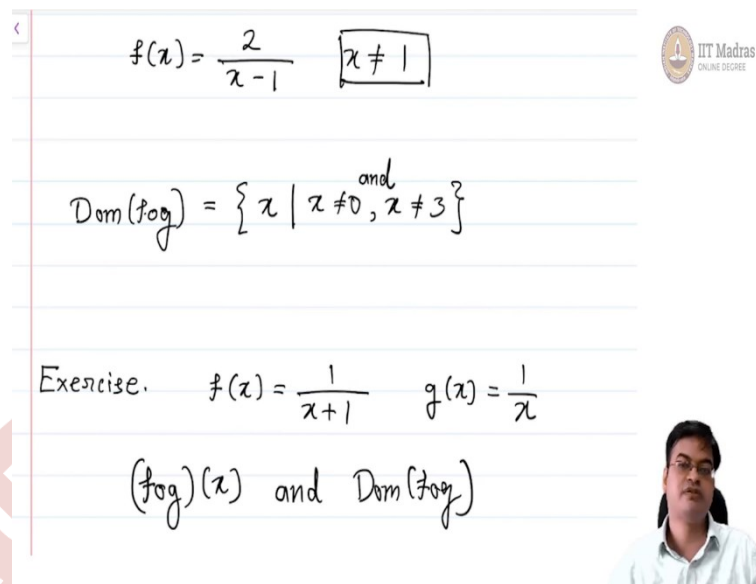 f(x) = 2/(x-1) x ≠ 1
IIT Madras
ONLINE DEGREE
and
Dom(fog) = { x | x ≠ 0, x ≠ 3 }
Exercise. f(x) = 1/(x+1) g(x) = 1/x
(fog)(x) and Dom(fog)